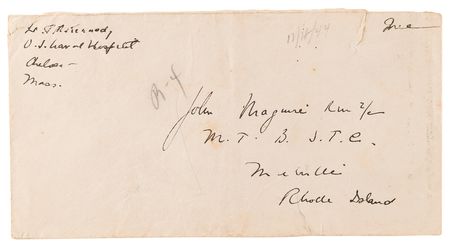 Lt J. F. Kennedy
U.S. Naval Hospital
Chelsea
Mass.
11/12/44
Free
R-4
John Maguire Rm 2/c
M. T. B. S. T. C.
Melville
Rhode Island